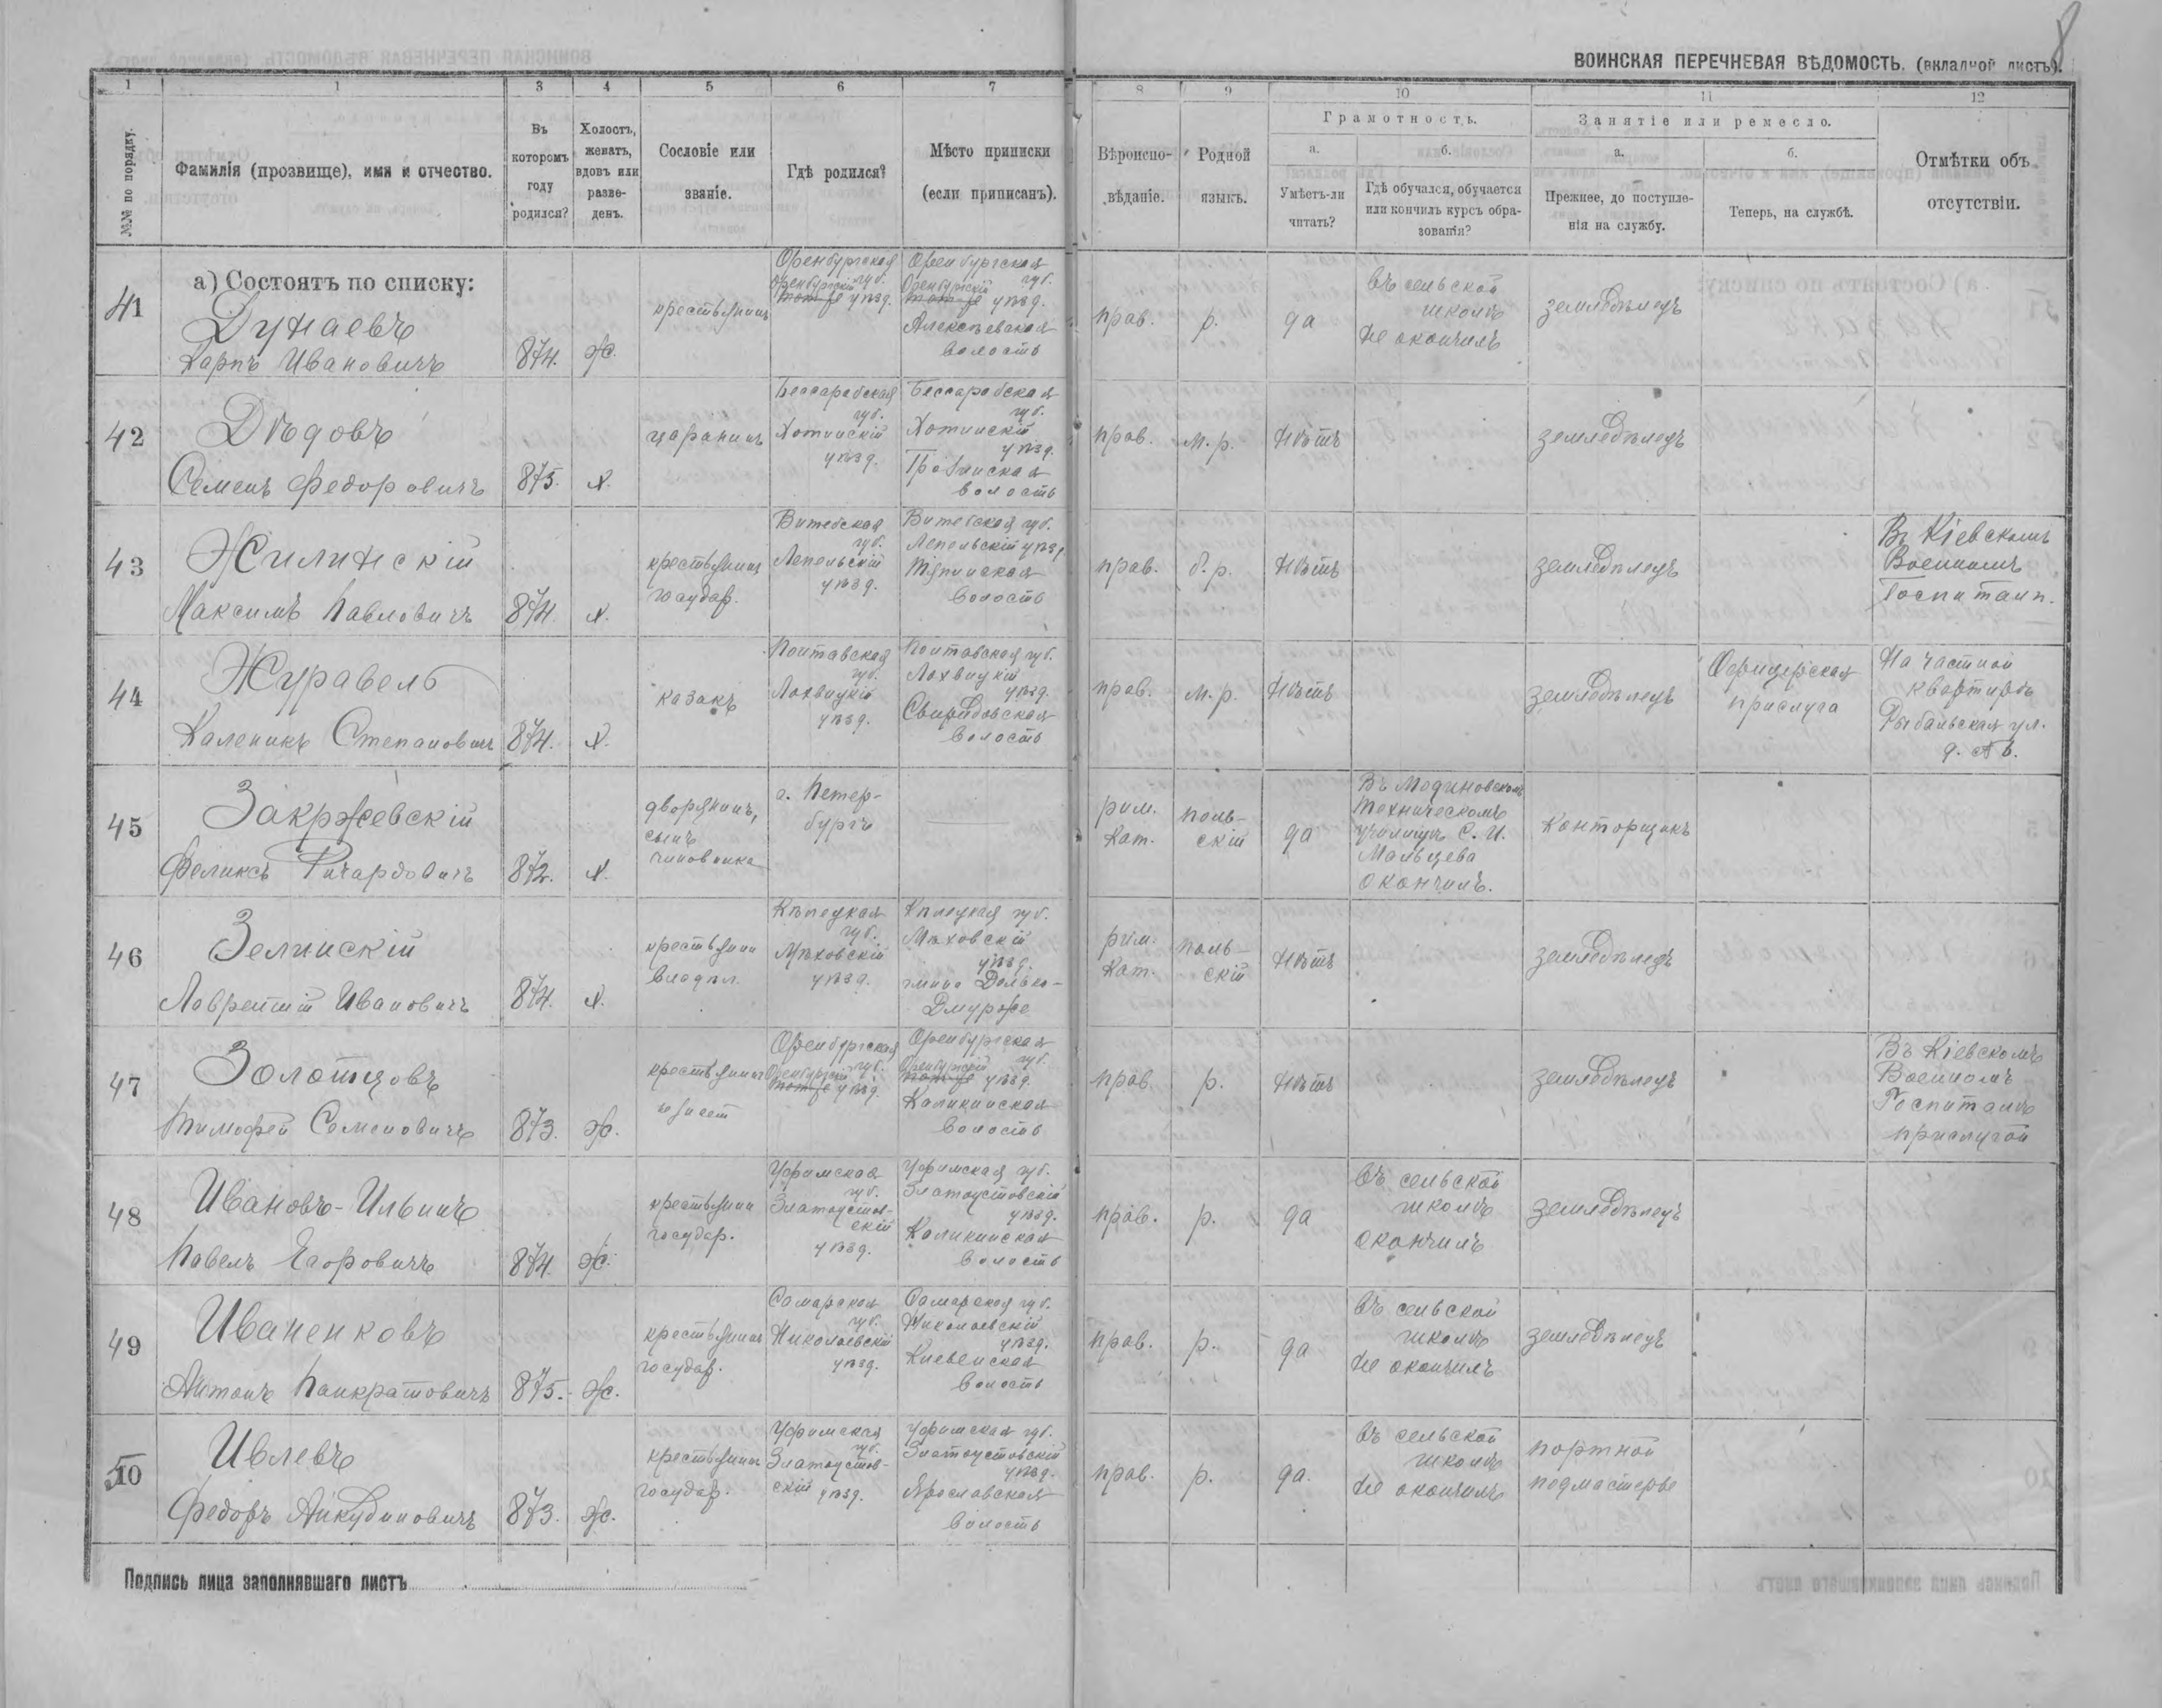 8
ВОИНСКАЯ ПЕРЕЧНЕВАЯ ВѢДОМОСТЬ. (вкладной листъ).
1 1 3 4 5 6 7 8 9 10 11 12
№№ по порядку.
Фамилія (прозвище), имя и отчество.
Въ которомъ году родился?
Холостъ, женатъ, вдовъ или разведенъ.
Сословіе или званіе.
Гдѣ родился?
Мѣсто приписки (если приписанъ).
Вѣроиспо-
вѣданіе.
Родной языкъ.
Грамотность.
а.
Умѣетъ-ли читать?
б.
Гдѣ обучался, обучается
или кончилъ курсъ обра-
зованія?
Занятіе или ремесло.
а.
Прежнее, до поступле-
нія на службу.
б.
Теперь, на службѣ.
Отмѣтки объ
отсутствіи.
а) Состоятъ по списку:
41
Дунаевъ
Карпъ Ивановичъ
874. ж.
крестьянинъ
Оренбургская
губ.
Оренбургскій
уѣзд.
Оренбургская
губ.
Оренбургскій
уѣзд.
Алексѣевская
волость
прав. р. да
въ сельской
школѣ
не окончилъ
земледѣлецъ
42
Дѣдовъ
Семенъ Федоровичъ
875. х.
царанинъ
Бессарабская
губ.
Хотинскій
уѣзд.
Бессарабская
губ.
Хотинскій
уѣзд.
волость
прав. м.р. нѣтъ
земледѣлецъ
43
Жилинскій
Максимъ Павловичъ
874. х.
крестьянинъ
государ.
Витебская
губ.
Лепельскій
уѣзд.
Витебская губ.
Лепельскій уѣзд.
волость
прав. б.р. нѣтъ
земледѣлецъ
Въ Кіевскомъ
Военномъ
Госпитал.
44
Журавель
Каленикъ Степановичъ
874. х.
казакъ
Полтавская
губ.
Лохвицкій
уѣзд.
Полтавская губ.
Лохвицкій
уѣзд.
Свиридовская
волость
прав. м.р. нѣтъ
земледѣлецъ
Офицерская
прислуга
На частной
квартирѣ
Рыбальская ул.
45
Закржевскій
Феликсъ Ричардовичъ
872. х.
дворянинъ,
сынъ
чиновника
г. Петер-
бургъ
рим.
кат.
поль-
скій
да
Техническомъ
училищѣ С. И.
Мальцева
окончилъ.
конторщикъ
46
Зелинскій
Лаврентій Ивановичъ
874. х.
крестьянин
владѣл.
Кѣлецкая
губ.
Мѣховскій
уѣзд.
Кѣлецкая губ.
Мѣховскій
уѣзд.
гмина
рим.
кат.
поль-
скій
нѣтъ
земледѣлецъ
47
Золотцовъ
Тимофей Семеновичъ
873. ж.
крестьянинъ
Оренбургская
губ.
Оренбургскій
уѣзд.
Оренбургская
губ.
Оренбургскій
уѣзд.
Каликинская
волость
прав. р. нѣтъ
земледѣлецъ
Въ Кіевскомъ
Военномъ
Госпиталѣ
прислугой
48
Ивановъ-Ильинъ
Павелъ Егоровичъ
874. ж.
крестьянин
государ.
Уфимская
губ.
Златоустов-
скій
уѣзд.
Уфимская губ.
Златоустовскій
уѣзд.
Каликинская
волость
прав. р. да
въ сельской
школѣ
окончилъ
земледѣлецъ
49
Иваненковъ
Антонъ Панкратовичъ
875. ж.
крестьянинъ
государ.
Самарская
губ.
Николаевскій
уѣзд.
Самарская губ.
Николаевскій
уѣзд.
волость
прав. р. да
въ сельской
школѣ
не окончилъ
земледѣлецъ
50
Ивлевъ
Федоръ Анкудиновичъ
873. ж.
крестьянинъ
государ.
Уфимская
губ.
Златоустов-
скій уѣзд.
Уфимская губ.
Златоустовскій
уѣзд.
Ярославская
волость
прав. р. да.
въ сельской
школѣ
не окончилъ
портной
подмастерье
Подпись лица заполнявшаго листъ